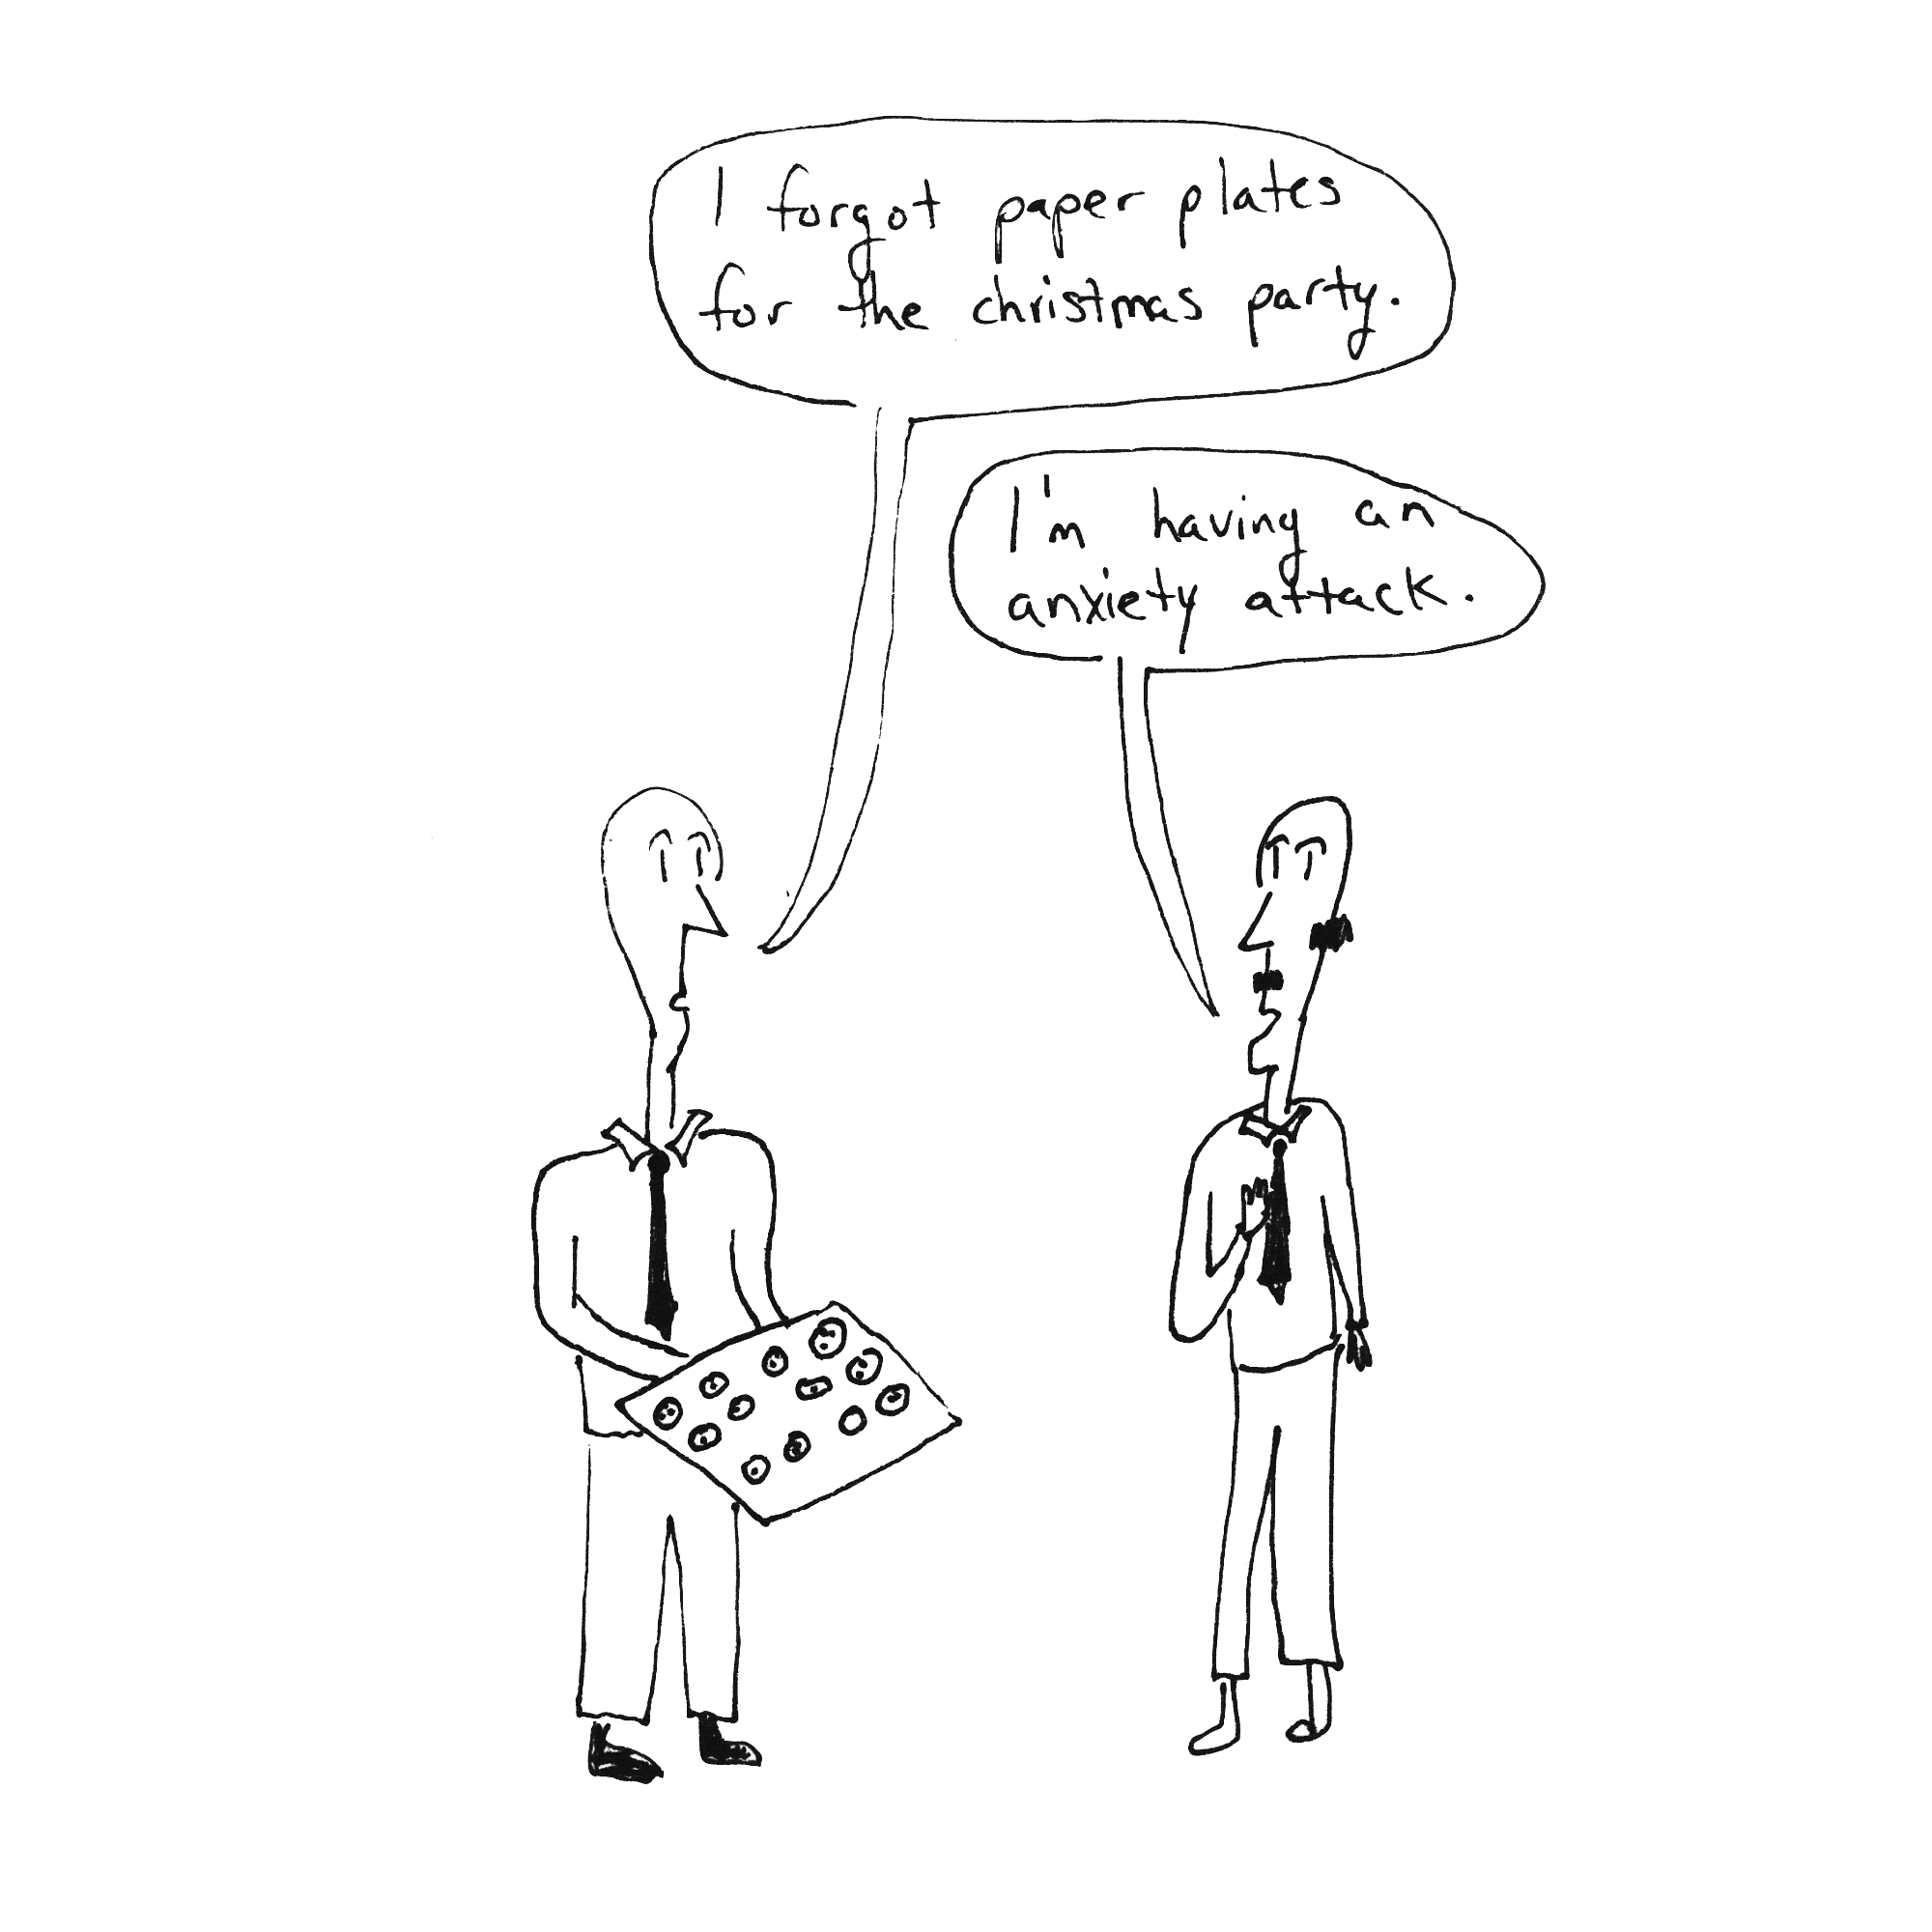 I forgot paper plates
for the christmas party.
I'm having an
anxiety attack.